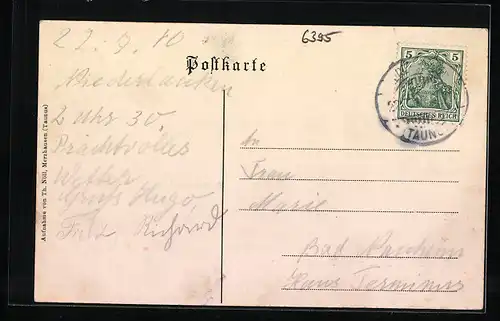 22. 9. 10
6395
Postkarte
5 5
DEUTSCHES REICH
(TAUNUS
2 Uhr 30,
Prachtvolles
Wetter
Gruß Hugo
Fritz Richard
An
Frau
Marie
Bad
Haus Terminus
Aufnahme von Th. Nöll, Merzhausen (Taunus)